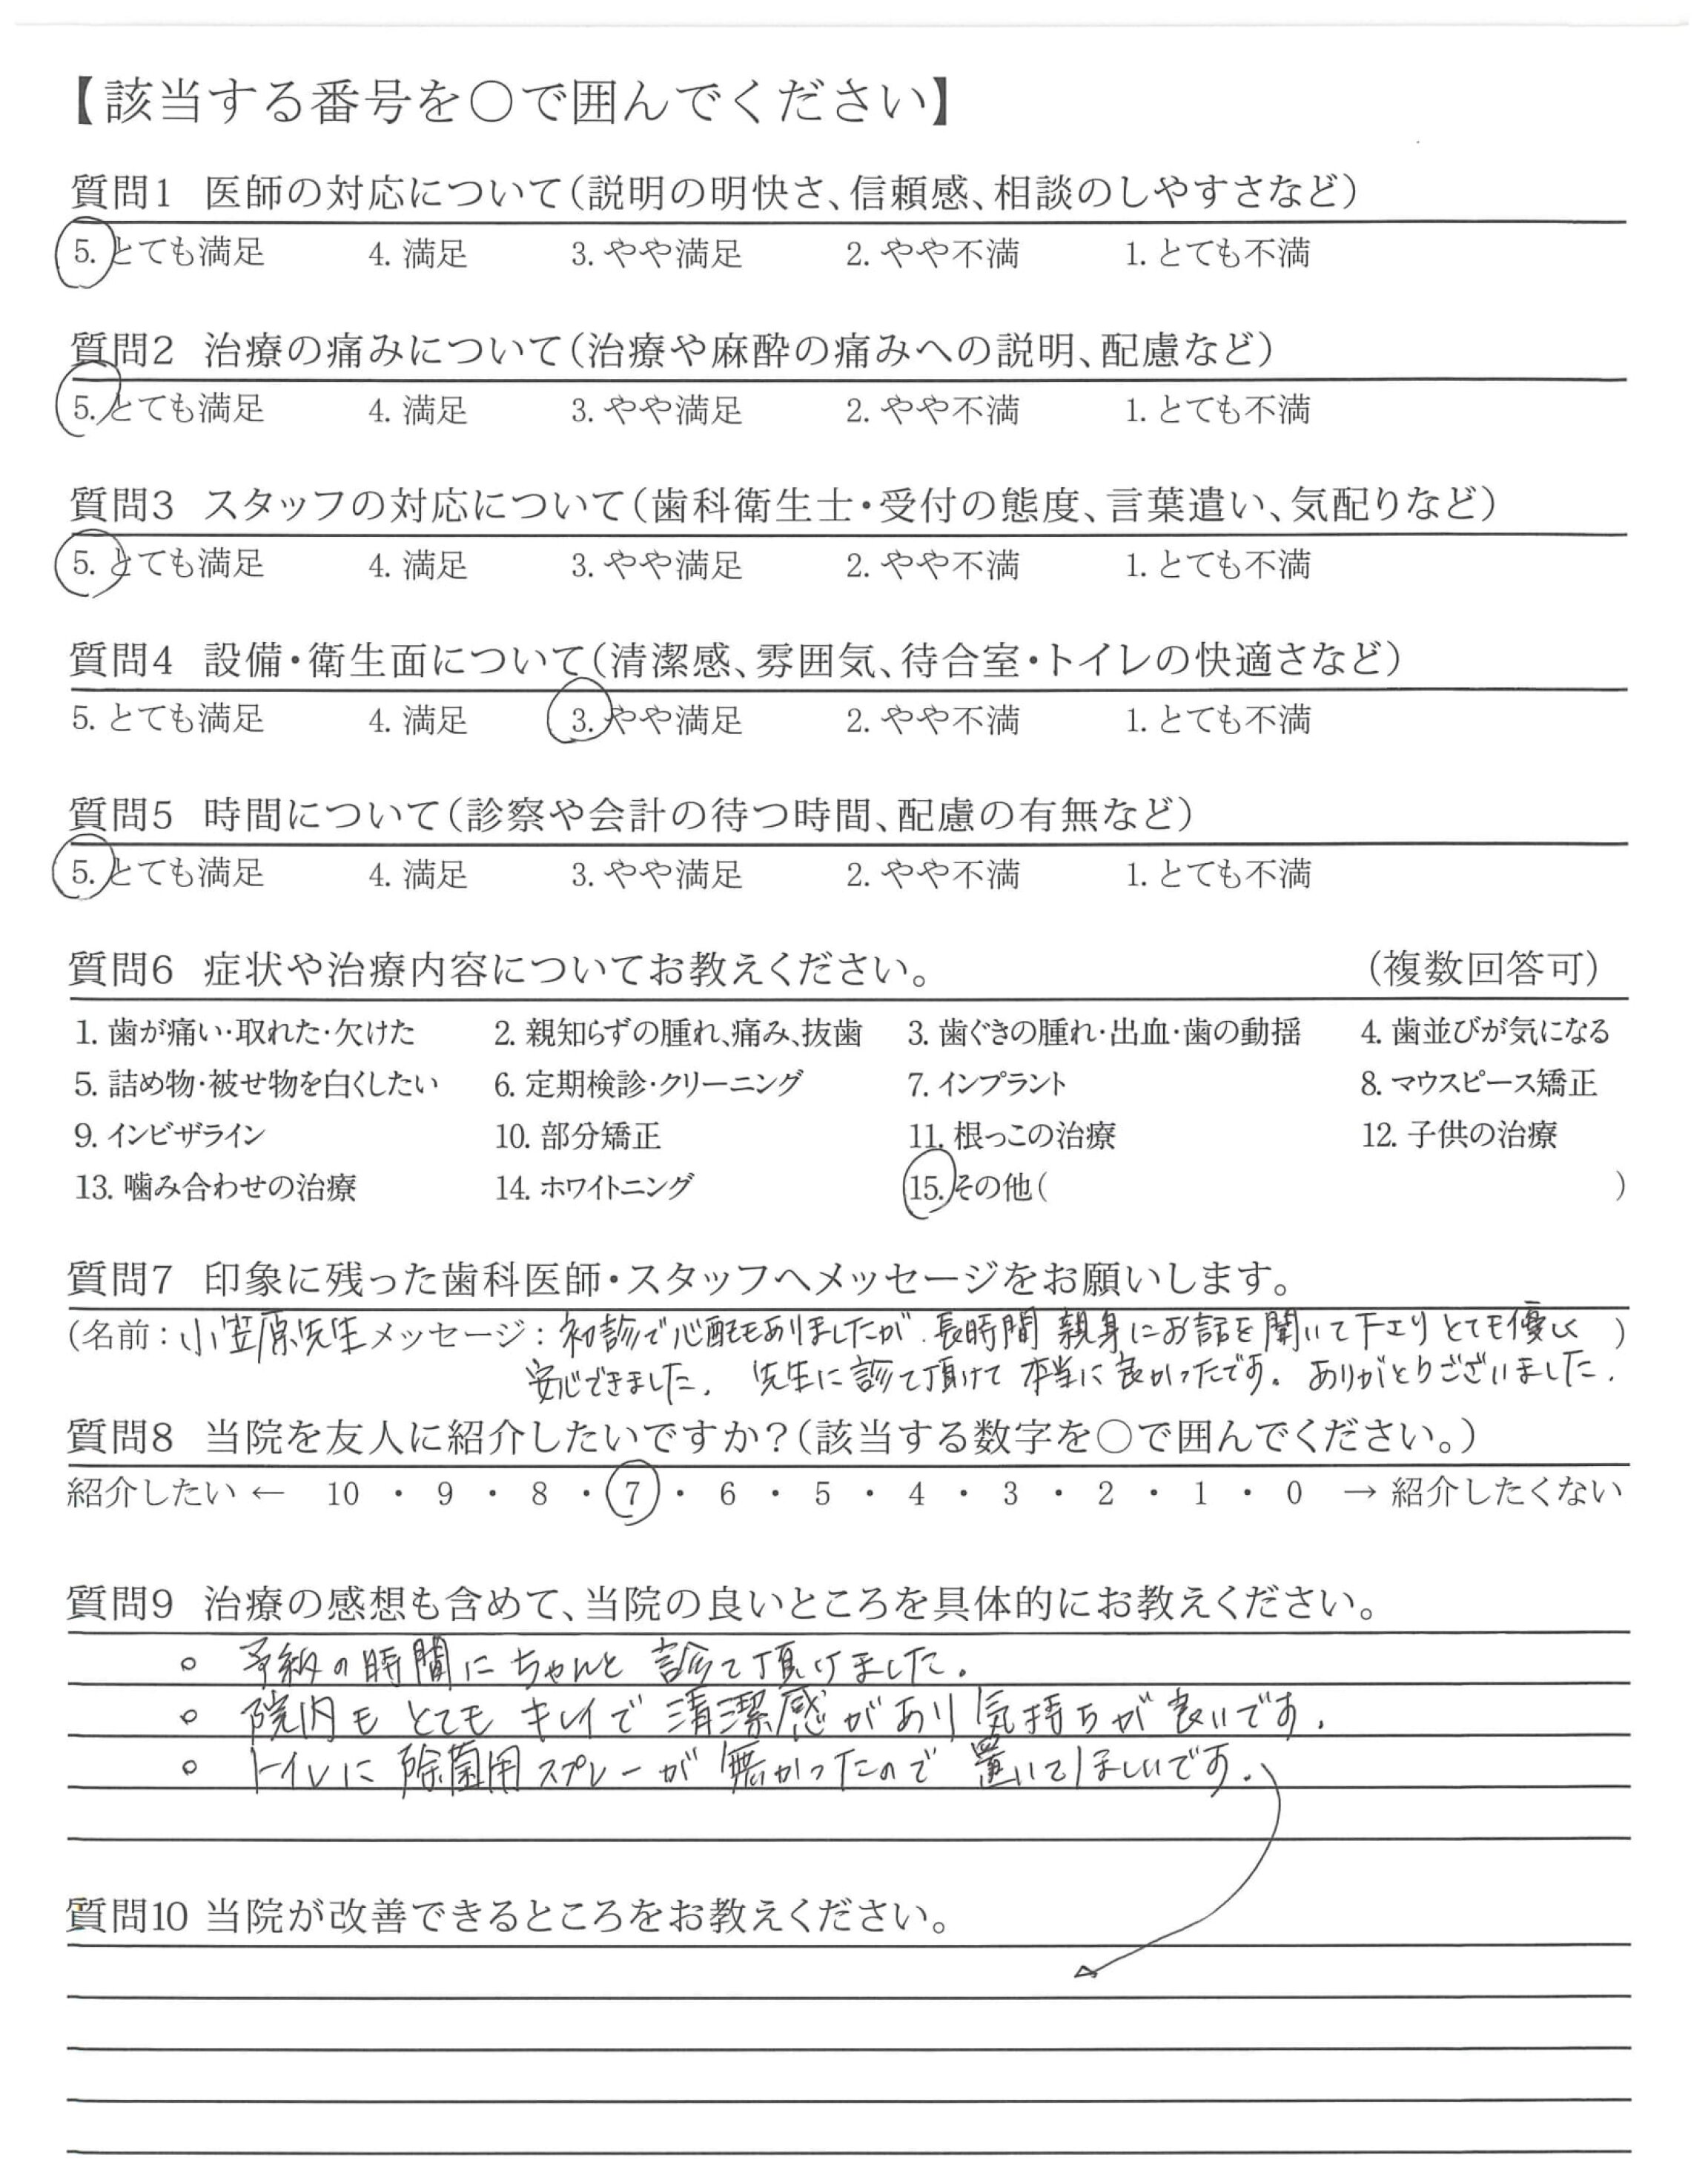 【該当する番号を○で囲んでください】
質問1 医師の対応について(説明の明快さ、信頼感、相談のしやすさなど)
5. とても満足 4. 満足 3. やや満足 2. やや不満 1. とても不満
質問2 治療の痛みについて(治療や麻酔の痛みへの説明、配慮など)
5. とても満足 4. 満足 3. やや満足 2. やや不満 1. とても不満
質問3 スタッフの対応について(歯科衛生士・受付の態度、言葉遣い、気配りなど)
5. とても満足 4. 満足 3. やや満足 2. やや不満 1. とても不満
質問4 設備・衛生面について(清潔感、雰囲気、待合室・トイレの快適さなど)
5. とても満足 4. 満足 3. やや満足 2. やや不満 1. とても不満
質問5 時間について(診察や会計の待つ時間、配慮の有無など)
5. とても満足 4. 満足 3. やや満足 2. やや不満 1. とても不満
質問6 症状や治療内容についてお教えください。 (複数回答可)
1. 歯が痛い・取れた・欠けた 2. 親知らずの腫れ、痛み、抜歯 3. 歯ぐきの腫れ・出血・歯の動揺 4. 歯並びが気になる
5. 詰め物・被せ物を白くしたい 6. 定期検診・クリーニング 7. インプラント 8. マウスピース矯正
9. インビザライン 10. 部分矯正 11. 根っこの治療 12. 子供の治療
13. 噛み合わせの治療 14. ホワイトニング 15. その他( )
質問7 印象に残った歯科医師・スタッフへメッセージをお願いします。
(名前:小笠原先生 メッセージ:初診で心配もありましたが、長時間 親身にお話を聞いて下さりとても優しく )
安心できました。 先生に診て頂けて 本当に良かったです。ありがとうございました。
質問8 当院を友人に紹介したいですか?(該当する数字を○で囲んでください。)
紹介したい ← 10 ・ 9 ・ 8 ・ 7 ・ 6 ・ 5 ・ 4 ・ 3 ・ 2 ・ 1 ・ 0 → 紹介したくない
質問9 治療の感想も含めて、当院の良いところを具体的にお教えください。
○ 予約の時間に ちゃんと 診て頂けました。
○ 院内も とても キレイで 清潔感があり 気持ちが良いです。
○ トイレに 除菌用スプレーが 無かったので 置いてほしいです。
質問10 当院が改善できるところをお教えください。